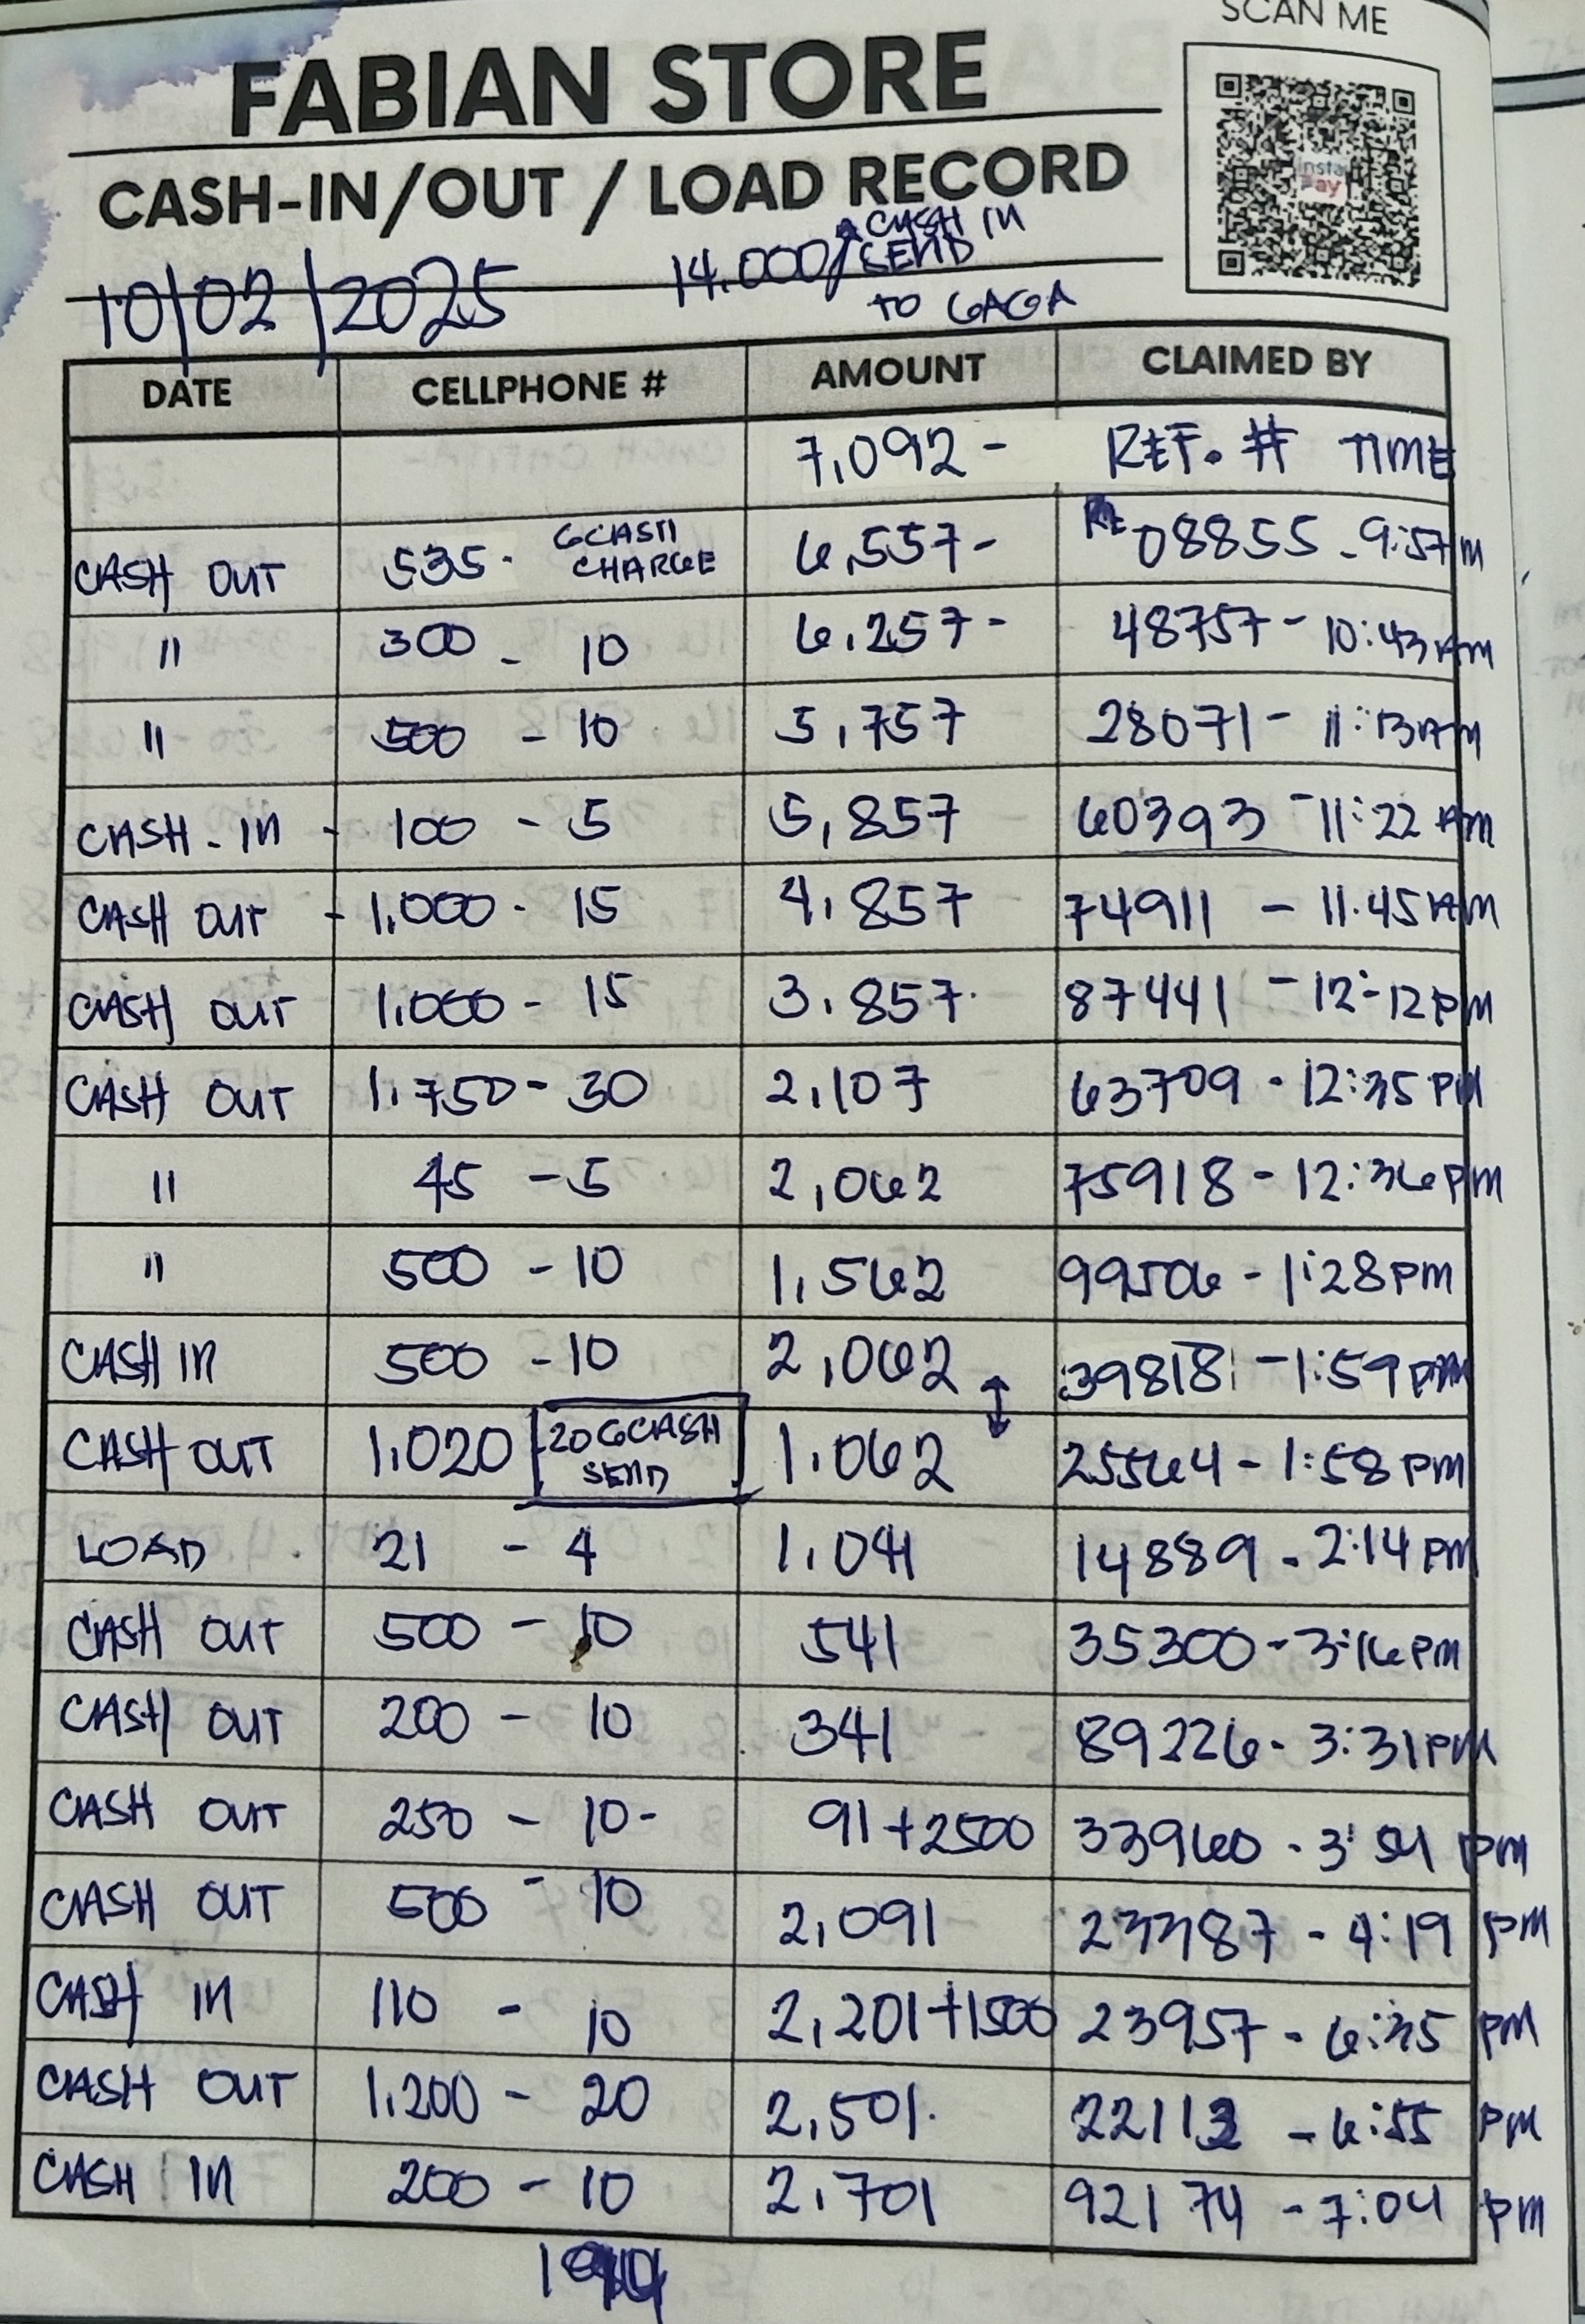 SCAN ME
FABIAN STORE
CASH-IN/OUT / LOAD RECORD
Insta Pay
10/02/2025 14.000/ CASH IN
SEND
TO GAGA
DATE CELLPHONE # AMOUNT CLAIMED BY
7,092 - REF. # TIME
CASH OUT 535 - GCASH CHARGE 6,557 - 08855 - 9:57 M
" 300 - 10 6,257 - 48757 - 10:43 AM
" 500 - 10 5,757 28071 - 11:13 AM
CASH - IN - 100 - 5 5,857 60393 - 11:22 AM
CASH OUT - 1,000 - 15 4,857 74911 - 11.45 AM
CASH OUT 1,000 - 15 3,857 87441 - 12:12 PM
CASH OUT 1,750 - 30 2,107 63709 - 12:35 PM
" 45 - 5 2,062 75918 - 12:36 PM
" 500 - 10 1,562 99506 - 1:28 PM
CASH IN 500 - 10 2,062 39818 - 1:59 PM
CASH OUT 1,020 20 GCASH SEND 1,062 25564 - 1:58 PM
LOAD 21 - 4 1,041 14889 - 2:14 PM
CASH OUT 500 - 10 541 35300 - 3:16 PM
CASH OUT 200 - 10 341 89226 - 3:31 PM
CASH OUT 250 - 10 - 91 + 2500 33960 - 3:51 PM
CASH OUT 500 - 10 2,091 23387 - 4:19 PM
CASH IN 110 - 10 2,201 + 1500 23957 - 6:35 PM
CASH OUT 1,200 - 20 2,501. 22113 - 6:55 PM
CASH IN 200 - 10 2,701 92174 - 7:04 PM